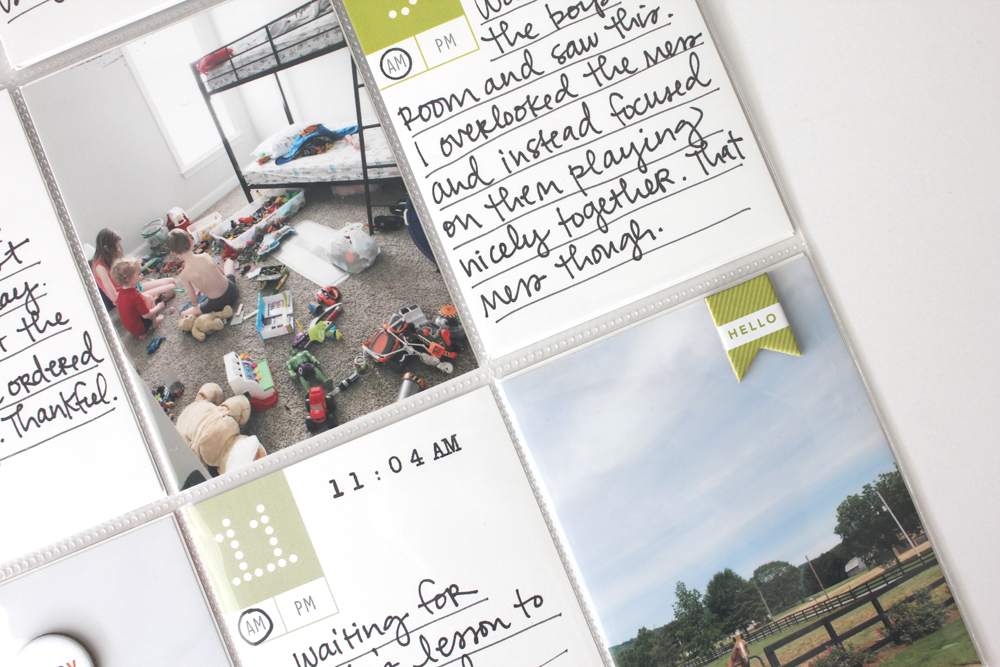 AM PM
the boys
Room and saw this.
I overlooked the mess
and instead focused
on them playing
nicely together. That
mess though.
HELLO
ay.
the
ordered
. Thankful.
11:04 AM
11
AM PM
Waiting for
lesson to